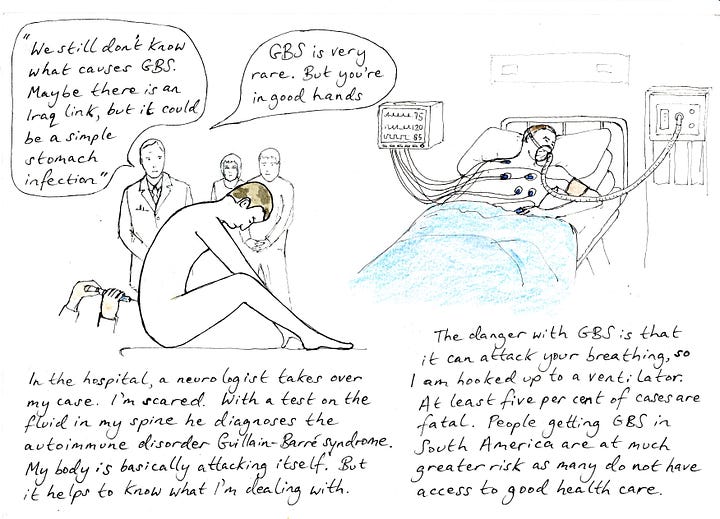 "We still don't know
what causes GBS.
Maybe there is an
Iraq link, but it could
be a simple
stomach
infection"
GBS is very
rare. But you're
in good hands
75
120
85
In the hospital, a neurologist takes over
my case. I'm scared. With a test on the
fluid in my spine he diagnoses the
autoimmune disorder Guillain-Barré syndrome.
My body is basically attacking itself. But
it helps to know what I'm dealing with.
The danger with GBS is that
it can attack your breathing, so
I am hooked up to a ventilator.
At least five per cent of cases are
fatal. People getting GBS in
South America are at much
greater risk as many do not have
access to good health care.